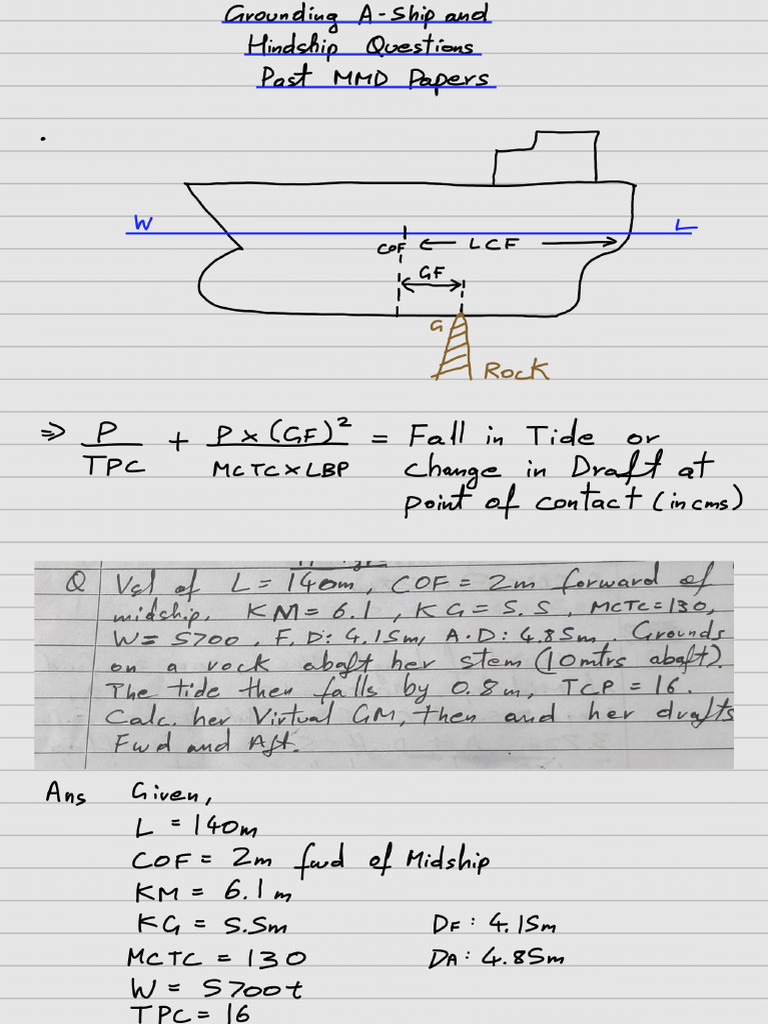 Grounding A-Ship and
Hindship Questions
Past MMD Papers
W
L
COF ← LCF →
GF
G
ROCK
⇒ P/TPC + P×(GF)²/MCTC×LBP = Fall in Tide or
change in Draft at
point of contact (in cms)
Q Vsl of L = 140m, COF = 2m forward of
midship. KM = 6.1, KG = 5.5, MCTC = 130,
W = 5700, F.D: 4.15m, A.D: 4.85m. Grounds
on a rock abaft her stem (10mtrs abaft).
The tide then falls by 0.8m, TCP = 16.
Calc. her Virtual GM, then and her drafts
Fwd and Aft.
Ans Given,
L = 140m
COF = 2m fwd of Midship
KM = 6.1m
KG = 5.5m DF: 4.15m
MCTC = 130 DA: 4.85m
W = 5700t
TPC = 16